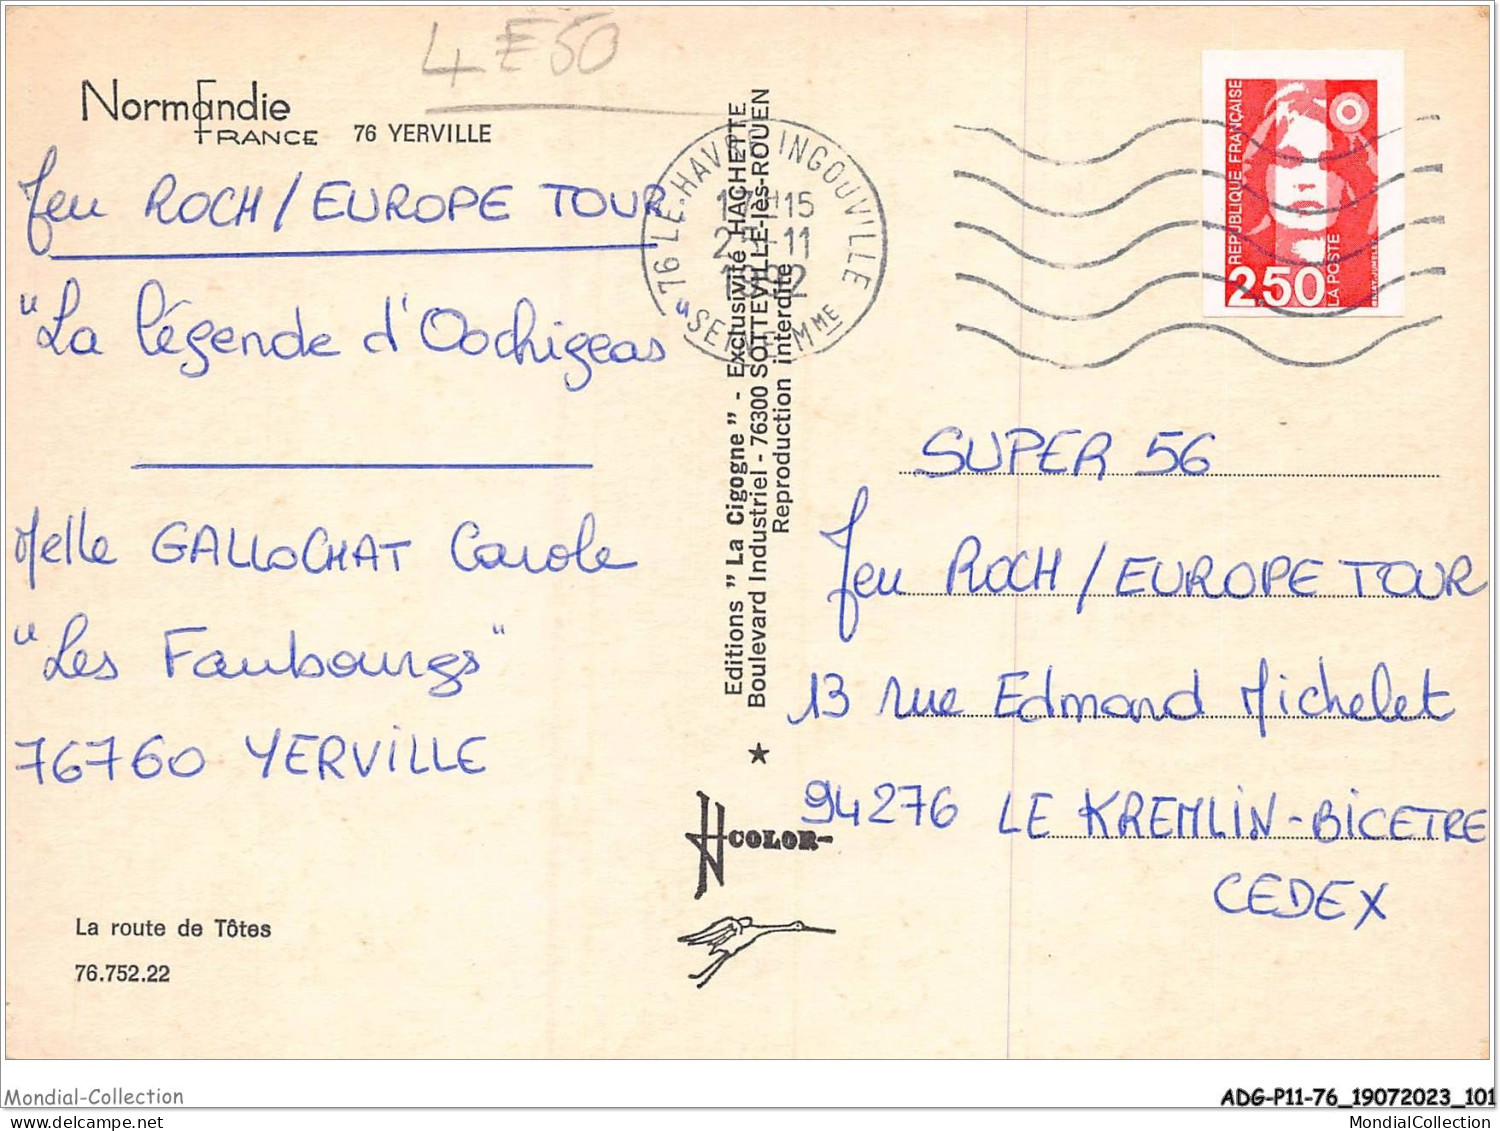 4 E 50
Normandie
FRANCE
76 YERVILLE
Jeu ROCH / EUROPE TOUR
"La légende d'Oochigeas"
Melle GALLOCHAT Carole
"Les Faubourgs"
76760 YERVILLE
La route de Tôtes
76.752.22
Editions " La Cigogne " - Exclusivité HACHETTE
Boulevard Industriel - 76300 SOTTEVILLE-lès-ROUEN
Reproduction interdite
COLOR-
76 LE HAVRE INGOUVILLE
17H15
-11
1992
SEINE MME
REPUBLIQUE FRANÇAISE
2,50
LA POSTE
SUPER 56
Jeu ROCH / EUROPE TOUR
13 rue Edmond Michelet
94276 LE KREMLIN-BICETRE
CEDEX
Mondial-Collection
ADG-P11-76_19072023_101
MondialCollection